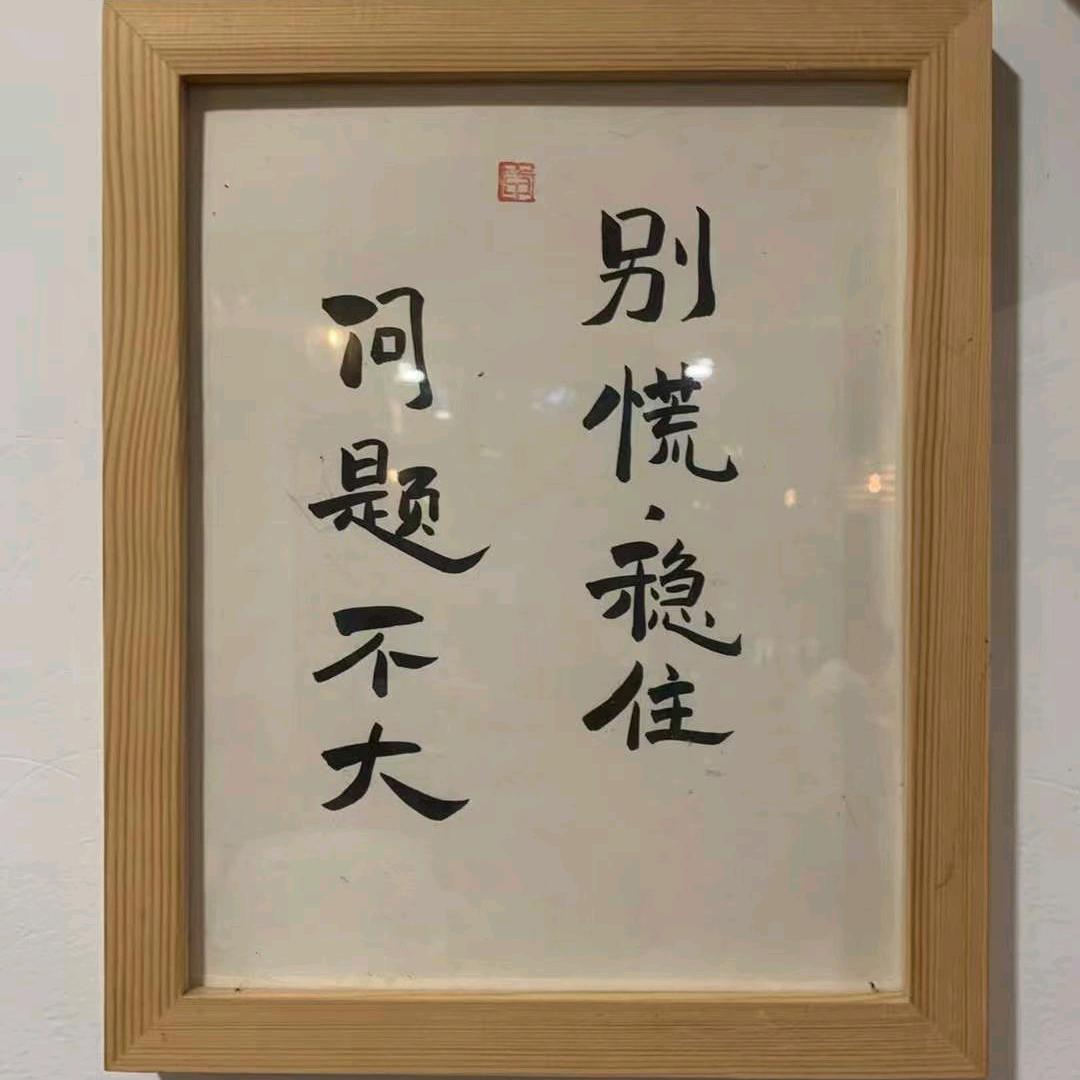 别慌·稳住
问题不大